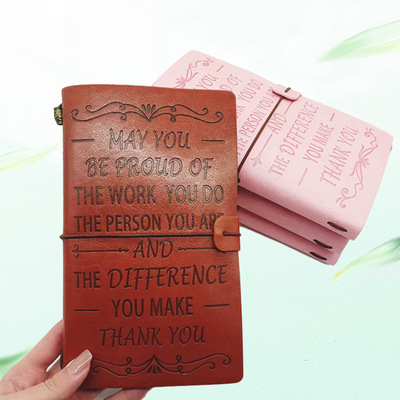 MAY YOU
BE PROUD OF
THE WORK YOU DO
THE PERSON YOU ARE
AND
THE DIFFERENCE
YOU MAKE
THANK YOU
PROUD OF
YOU DO
THE PERSON YOU
AND
THE DIFFERENCE
YOU MAKE
THANK YOU